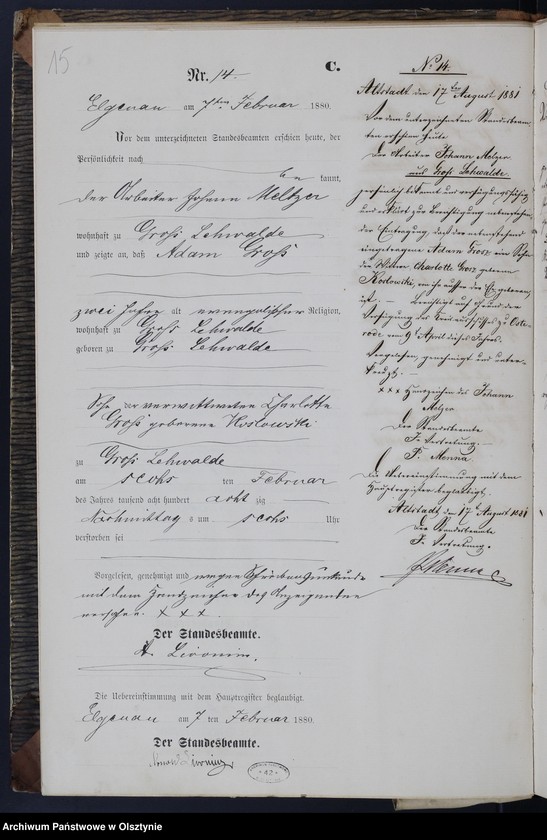 15
Nr. 14
C.
Elgenau am 7ten Februar 1880.
Vor dem unterzeichneten Standesbeamten erschien heute, der
Persönlichkeit nach
be kannt,
der Arbeiter Johann Meltzer
wohnhaft zu Groß Lehwalde
und zeigte an, daß Adam Groß
zwei Jahre alt evangelischer Religion,
wohnhaft zu Groß Lehwalde
geboren zu Groß Lehwalde
Sohn der verwittweten Charlotte
Groß geborene Koslowski
zu Groß Lehwalde
am sechs ten Februar
des Jahres tausend acht hundert acht zig
Nachmittags um sechs Uhr
verstorben sei
Vorgelesen, genehmigt und wegen Schreibensunkunde
mit dem Handzeichen des Anzeigenden
versehen. X X X.
Der Standesbeamte.
Die Uebereinstimmung mit dem Hauptregister beglaubigt.
Elgenau am 7 ten Februar 1880.
Der Standesbeamte.
No 14.
Altstadt den 17ten August 1881
Vor dem unterzeichneten Standesbeam
ten erschien heute
Der Arbeiter Johann Melzer
aus Groß Lehwalde
persönlich bekannt und verfügungsfähig
und erklärt zur Berichtigung untenstehen
der Eintragung, daß der untenstehend
eingetragene Adam Grosz ein Sohn
der Wittwe Charlotte Grosz geborene
Koslowski, ein außer der Ehe geborener
ist. — Berichtigt auf Grund der
Verfügung des Kreisausschusses zu Oste-
rode vom April dieses Jahres.
Vorgelesen, genehmigt und unter-
kreuzt. —
X X X Handzeichen des Johann
Melzer
Der Standesbeamte
I. Vertretung.
F. Menna
Die Uebereinstimmung mit dem
Hauptregister beglaubigt.
Altstadt, den 17 August 1881
Der Standesbeamte
I. Vertretung.
F. Menna
Archiwum Państwowe w Olsztynie
www.genealogiawarchiwach.pl